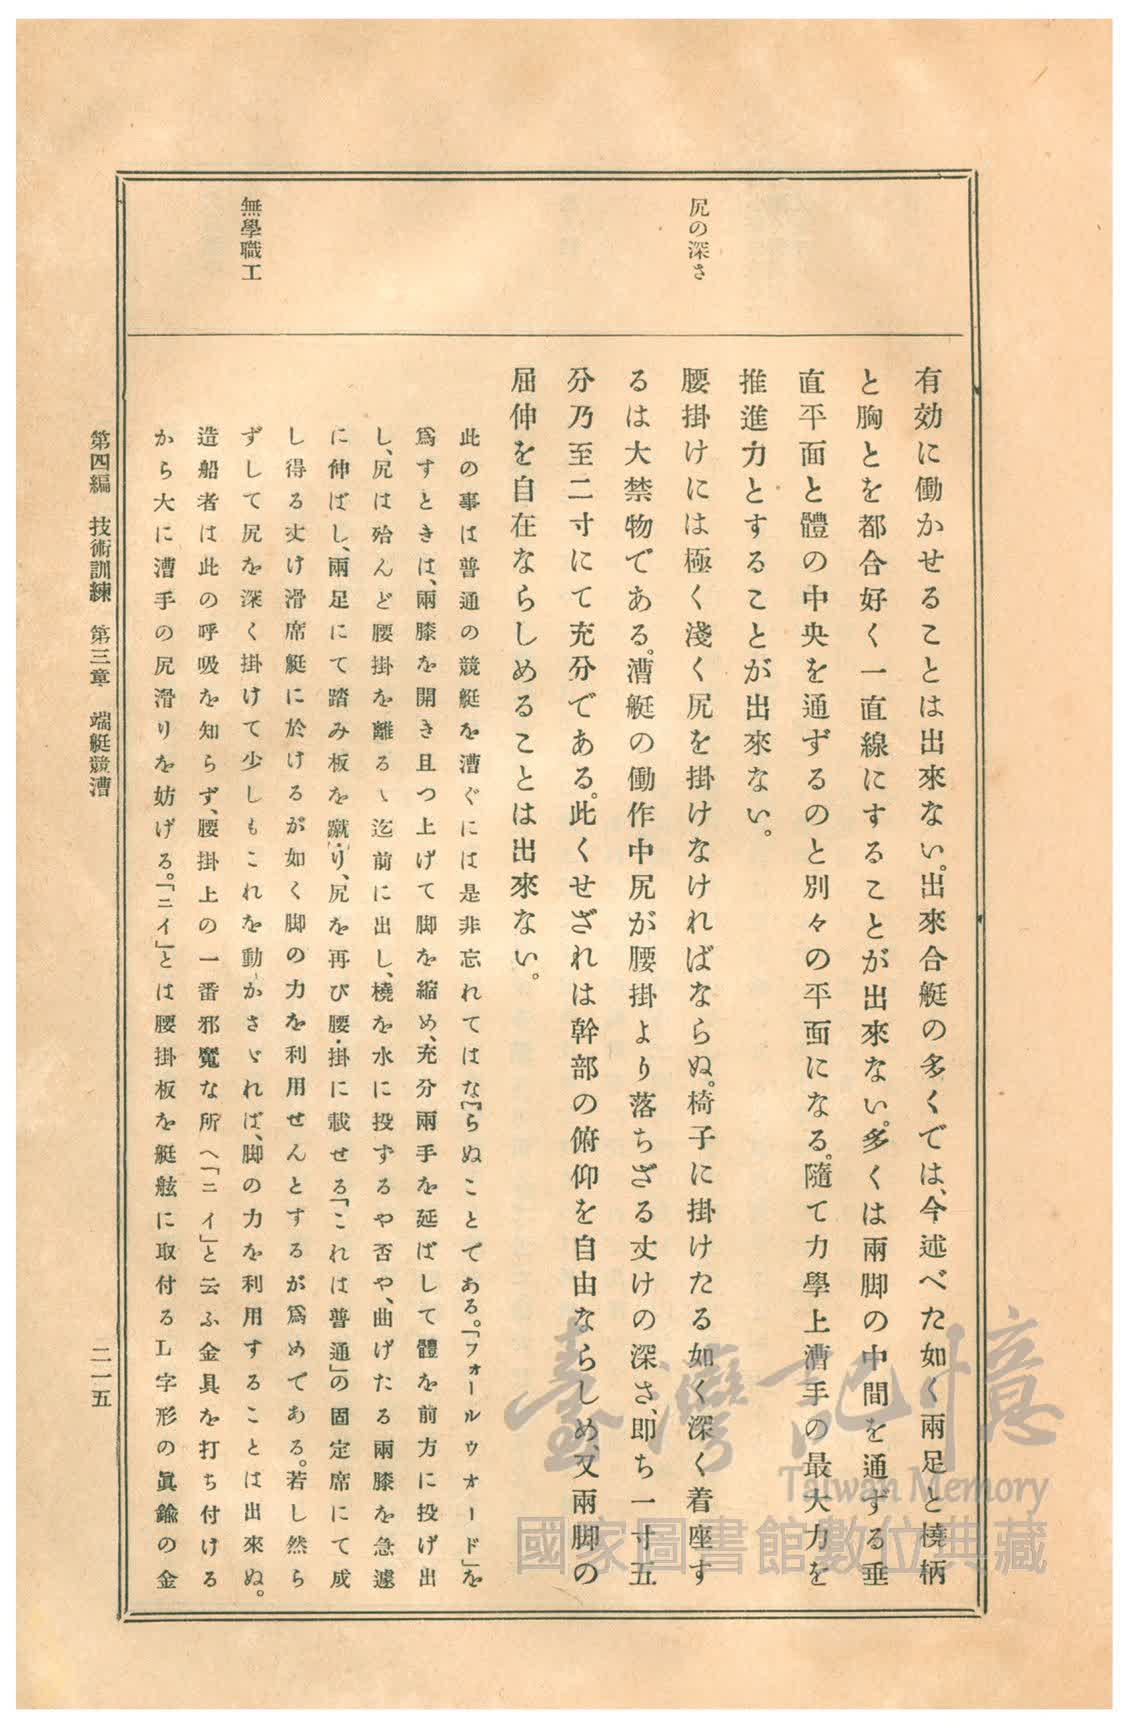 尻の深さ
無學職工
有効に働かせることは出來ない。出來合艇の多くでは、今述べた如く兩足と橈柄
と胸とを都合好く一直線にすることが出來ない。多くは兩脚の中間を通ずる垂
直平面と體の中央を通ずるのと別々の平面になる。隨て力學上漕手の最大力を
推進力とすることが出來ない。
腰掛けには極く淺く尻を掛けなければならぬ。椅子に掛けたる如く深く着座す
るは大禁物である。漕艇の働作中尻が腰掛より落ちざる丈けの深さ、即ち一寸五
分乃至二寸にて充分である。此くせざれは幹部の俯仰を自由ならしめ、又兩脚の
屈伸を自在ならしめることは出來ない。
此の事は普通の競艇を漕ぐには是非忘れてはな『らぬことである。「フォールウオード」を
爲すときは、兩膝を開き且つ上げて脚を縮め、充分兩手を延ばして體を前方に投げ出
し、尻は殆んど腰掛を離るゝ迄前に出し、橈を水に投ずるや否や、曲げたる兩膝を急遽
に伸ばし、兩足にて踏み板を蹴り、尻を再び腰掛に載せる「これは普通」の固定席にて成
し得る丈け滑席艇に於ける、が如く脚の力を利用せんとするが爲めである。若し然ら
ずして尻を深く掛けて少しもこれを動かさゞれば、脚の力を利用することは出來ぬ。
造船者は此の呼吸を知らず、腰掛上の一番邪魔な所へ「ニイ」と云ふ金具を打ち付ける
から大に漕手の尻滑りを妨げる。「ニイ」とは腰掛板を艇舷に取付るL字形の眞鍮の金
第四編 技術訓練 第三章 端艇競漕
二一五
臺灣記憶
Taiwan Memory
國家圖書館數位典藏